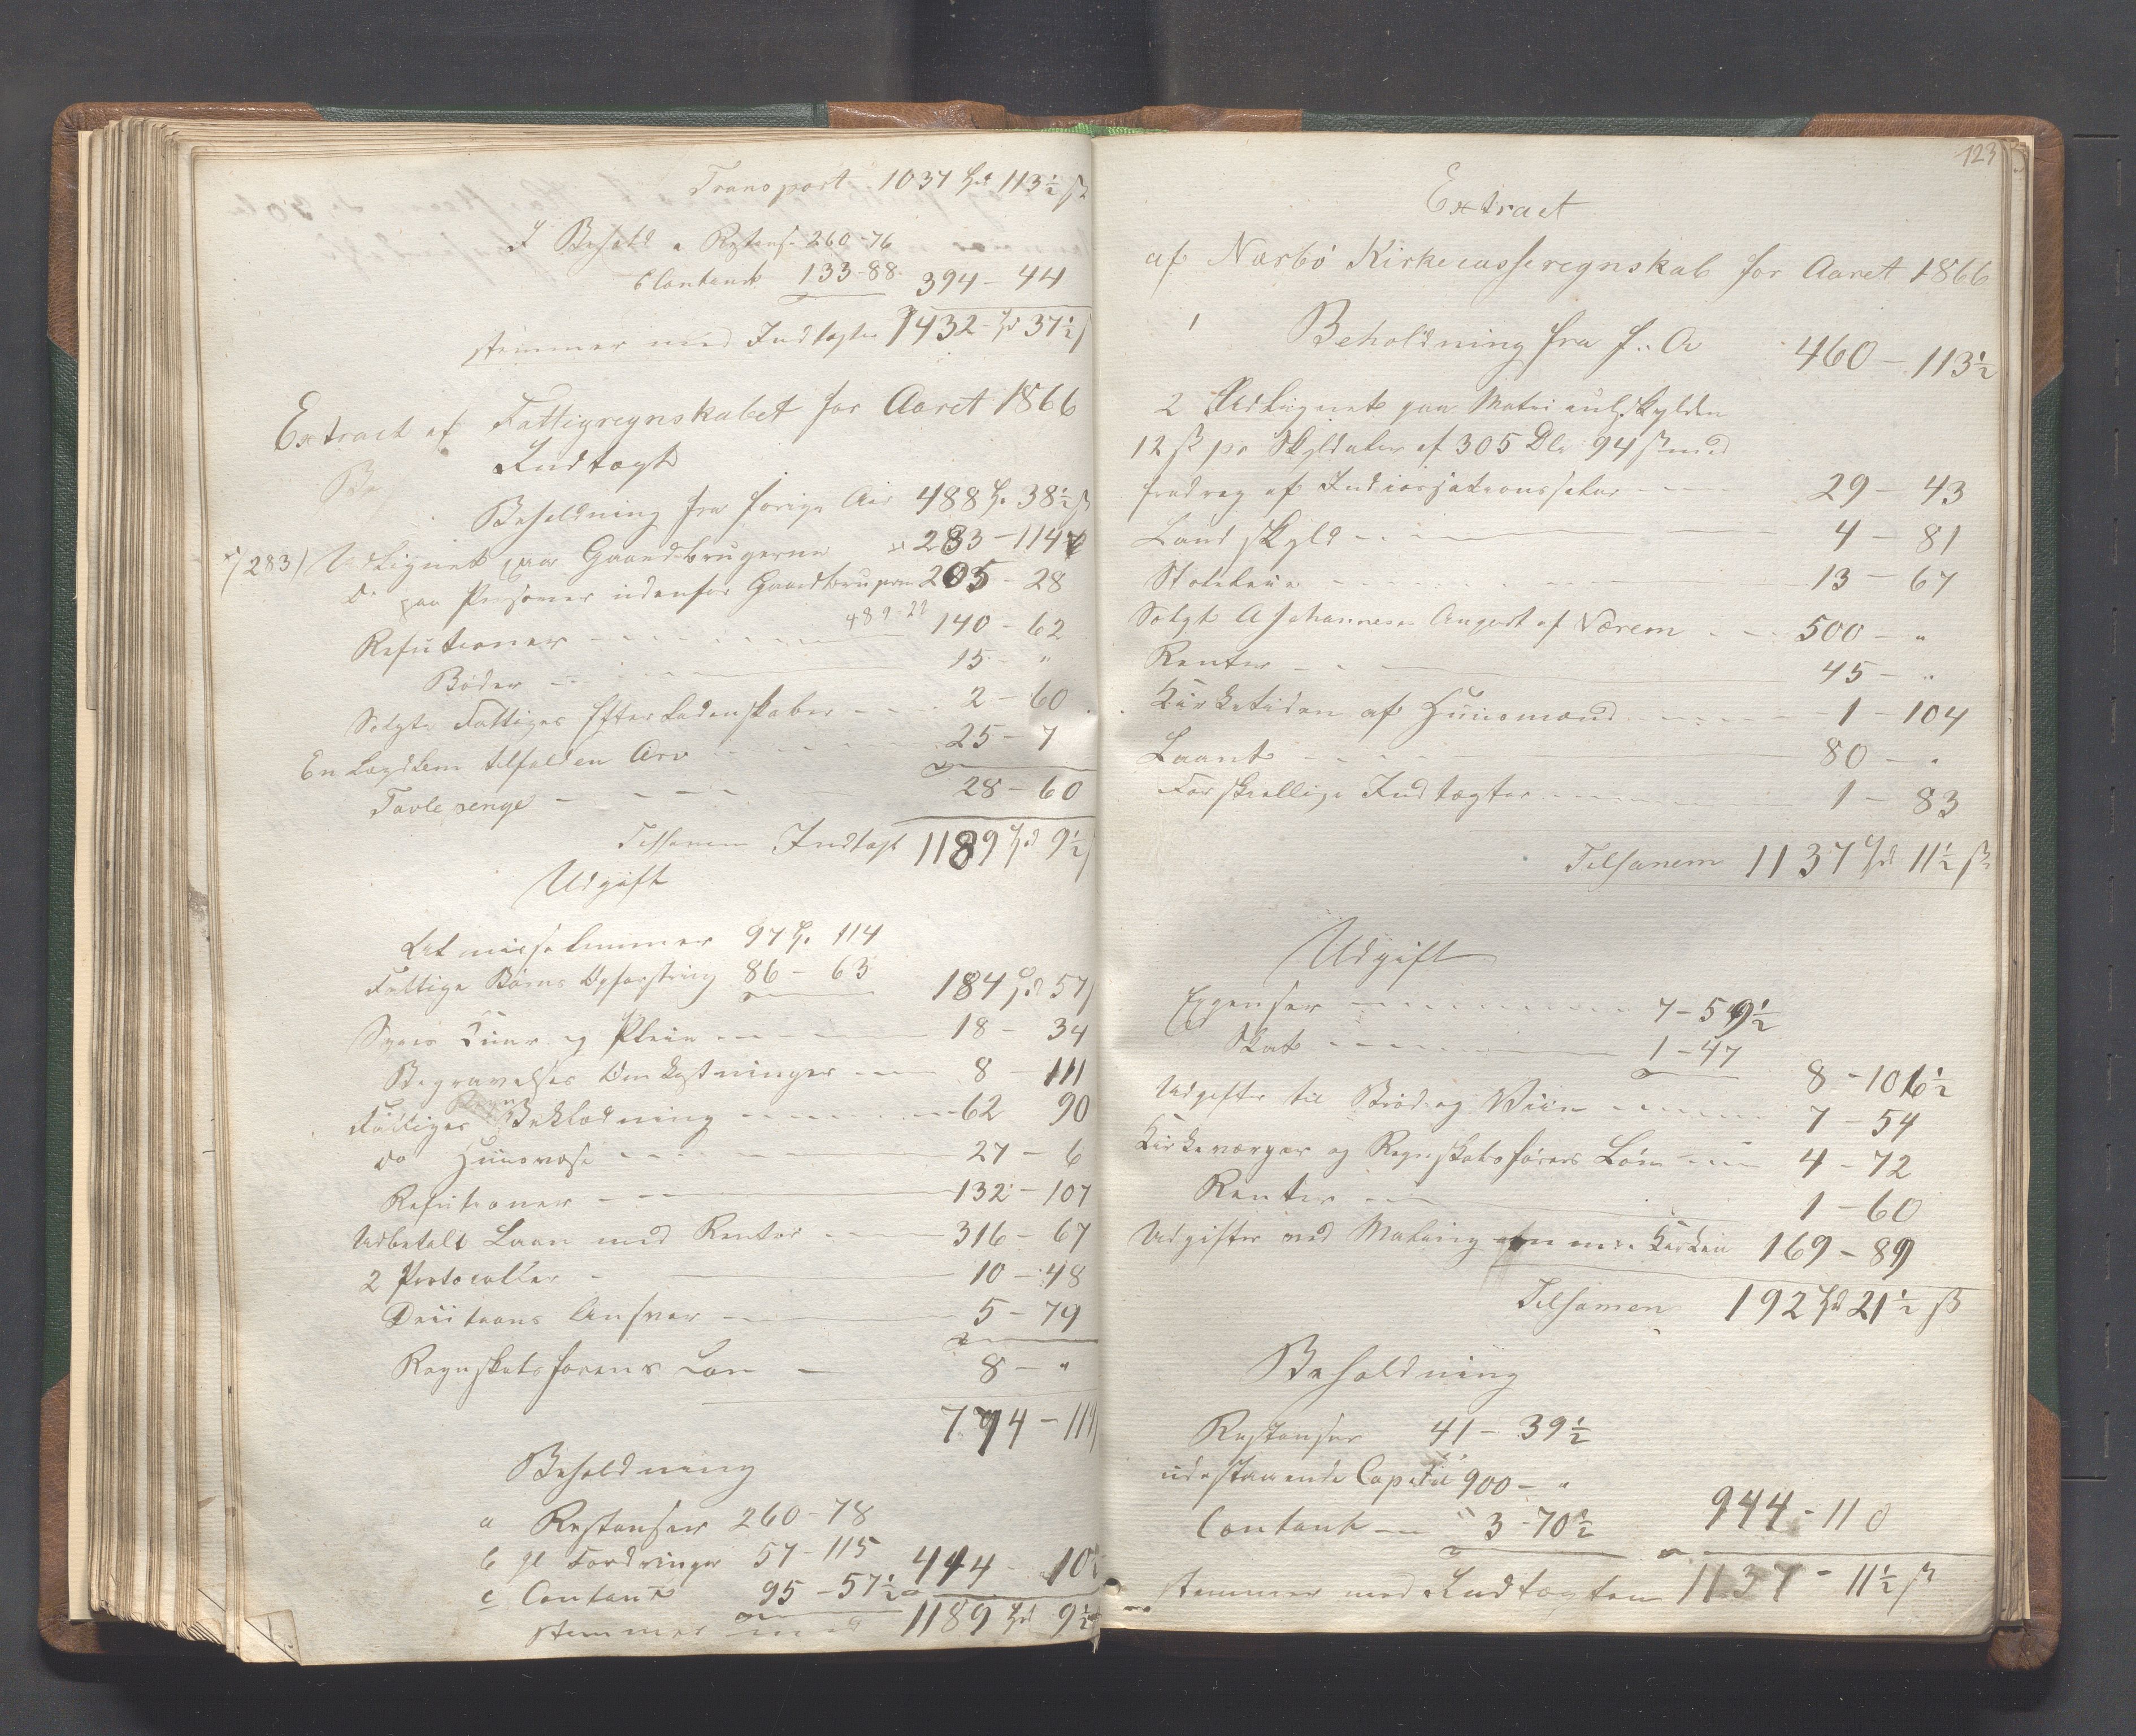 Transport 1037 Spd 113½ ß
I Behold a Restanse 260-76
b Contant 133-88 394-44
stemmer med Indtægten 1432 Spd 37½ ß
Extract af Fattigregnskabet for Aaret 1866
Indtægt
Beholdning fra forige Aar 488 Sp. 38½ ß
283) Udlignet paa Gaardbrugerne 283-114
Do paa Personer udenfor Gaardbrugerne 205-28
489-22
Refutioner 140-62
Bøder 15 - "
Solgte Fattiges Efterladenskaber 2-60
En Lægdslem tilfalden Arv 25-7
Tavlepenge 28-60
Tilsamen Indtægt 1189 Spd 9½ ß
Udgift
97 Sp. 114
Fattige Børns Opfostring 86-63 184 Spd 57 ß
Syges Kuur og Pleie 18-34
Begravelses Omkostninger 8-111
Fattiges Beklædning 62 90
do Huusleie 27-6
Refutioner 132-107
Udbetalt Laan med Renter 316-67
2 Protocoller 10-48
5-79
Regnskabsførerens Løn 8 - "
794-119
Beholdning
a Restanser 260-78
b gl Fordringer 57-115
c Contant 95-57½ 414 10½
stemmer med 1189 Spd 9½
123
Extract
af Nærbø Kirkecasseregnskab for Aaret 1866
1 Beholdning fra f. A 460-113½
2 Udlignet paa Matriculskylden
12 ß pr Skylddaler af 305 Dlr 94 ß med
fradrag af 29-43
Landskyld 4-81
Stoleleie 13-67
Solgt A Johannesen Augest af Værem 500 - "
Renter 45 - "
Kirketiden af Huusmænd 1-104
Laant 80 - "
Forskellige Indtægter 1-83
Tilsamen 1137 Spd 11½ ß
Udgift
Expenser 7-59½
Skat 1-47
8-106½
Udgifter til Brød og Viin 7-54
Kirkeværger og Regnskabsførers Løn 4-72
Renter 1-60
Udgifter ved Maling Kirken 169-89
Tilsamen 192 Spd 21½ ß
Beholdning
Restanser 41-39½
udestaaende Capital 900 - "
Contant 3-70½ 944-110
stemmer med Indtægten 1137-11½ ß